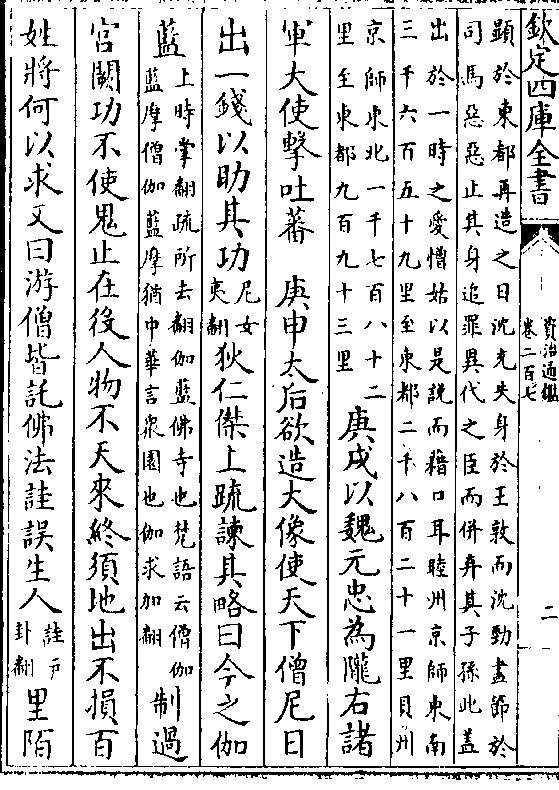 欽定四庫全書
資治通鑑
卷二百七
二
顯於東都再造之日沈充失身於王敦而沈勁盡節於
司馬惡惡止其身追罪異代之臣而併弃其子孫此蓋
出於一時之愛憎姑以是説而藉口耳睦州京師東南
三千六百五十九里至東都二千八百二十一里貝州
京師東北一千七百八十二
里至東都九百九十三里
庚戌以魏元忠為隴右諸
軍大使擊吐蕃 庚申太后欲造大像使天下僧尼日
出一錢以助其功尼女夷翻狄仁傑上疏諫其略曰今之伽
藍上時掌翻疏所去翻伽藍佛寺也梵語云僧伽藍摩僧伽藍摩猶中華言衆園也伽求加翻制過
宮闕功不使鬼止在役人物不天來終須地出不損百
姓將何以求又曰游僧皆託佛法詿誤生人詿戶卦翻里陌